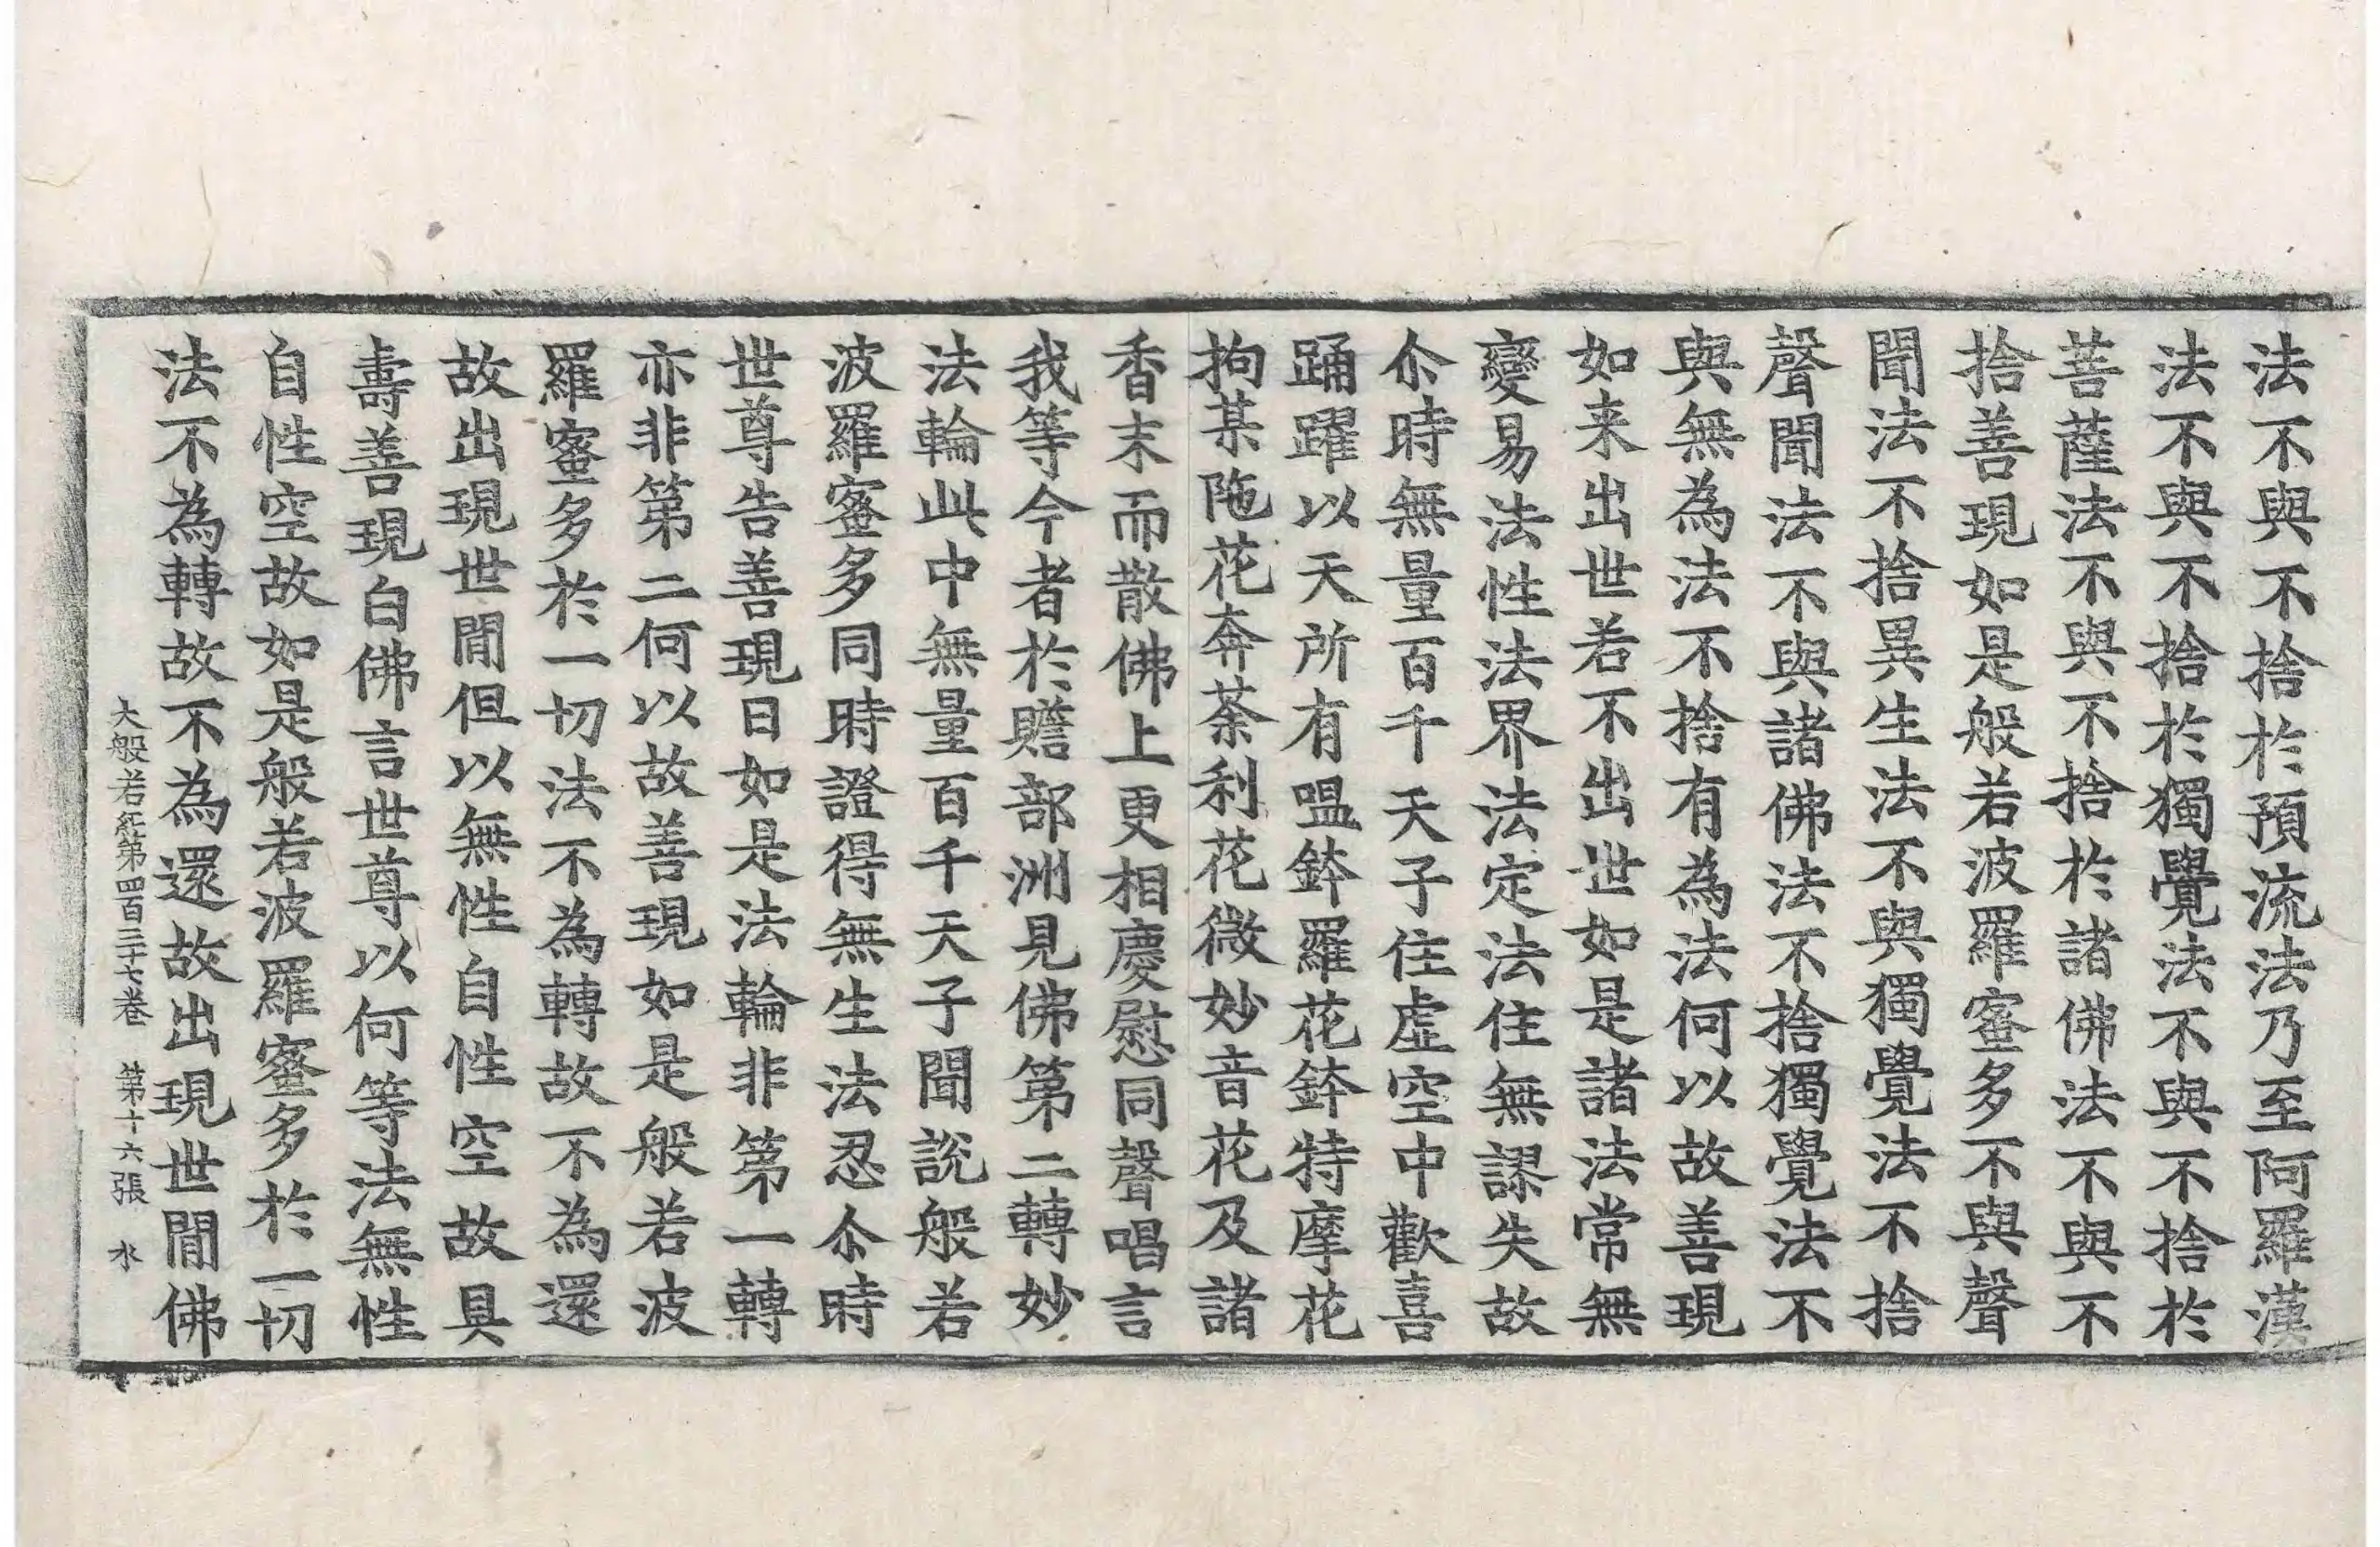 法不與不捨於預流法乃至阿羅漢
法不與不捨於獨覺法不與不捨於
菩薩法不與不捨於諸佛法不與不
捨善現如是般若波羅蜜多不與聲
聞法不捨異生法不與獨覺法不捨
聲聞法不與諸佛法不捨獨覺法不
與無為法不捨有為法何以故善現
如来出世若不出世如是諸法常無
變易法性法界法定法住無謬失故
尒時無量百千天子住虛空中歡喜
踊躍以天所有嗢鉢羅花鉢特摩花
拘某陁花奔荼利花微妙音花及諸
香末而散佛上更相慶慰同聲唱言
我等今者於贍部洲見佛第二轉妙
法輪此中無量百千天子聞說般若
波羅蜜多同時證得無生法忍尒時
世尊告善現曰如是法輪非第一轉
亦非第二何以故善現如是般若波
羅蜜多於一切法不為轉故不為還
故出現世間但以無性自性空故具
壽善現白佛言世尊以何等法無性
自性空故如是般若波羅蜜多於一切
法不為轉故不為還故出現世間佛
大般若経第四百三十七卷 第十六張 水